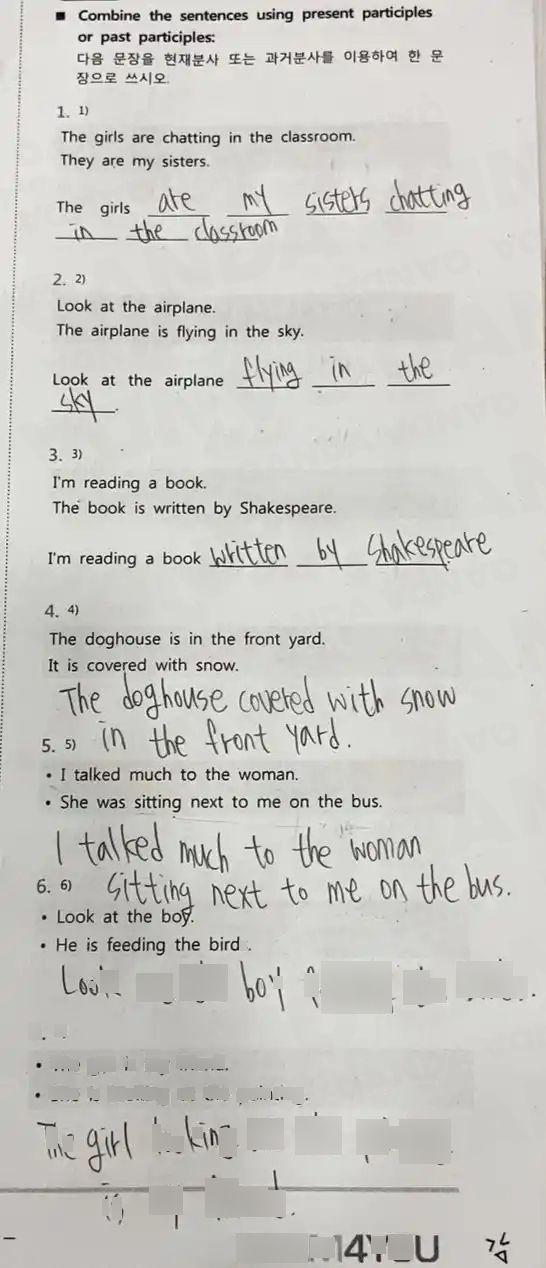 ■ Combine the sentences using present participles
or past participles:
다음 문장을 현재분사 또는 과거분사를 이용하여 한 문
장으로 쓰시오.
1. 1)
The girls are chatting in the classroom.
They are my sisters.
The girls are my sisters chatting
in the classroom
2. 2)
Look at the airplane.
The airplane is flying in the sky.
Look at the airplane flying in the
sky.
3. 3)
I'm reading a book.
The book is written by Shakespeare.
I'm reading a book written by Shakespeare
4. 4)
The doghouse is in the front yard.
It is covered with snow.
The doghouse covered with snow
in the front yard.
5. 5)
• I talked much to the woman.
• She was sitting next to me on the bus.
I talked much to the woman
sitting next to me on the bus.
6. 6)
• Look at the boy.
• He is feeding the bird .
boy
The girl